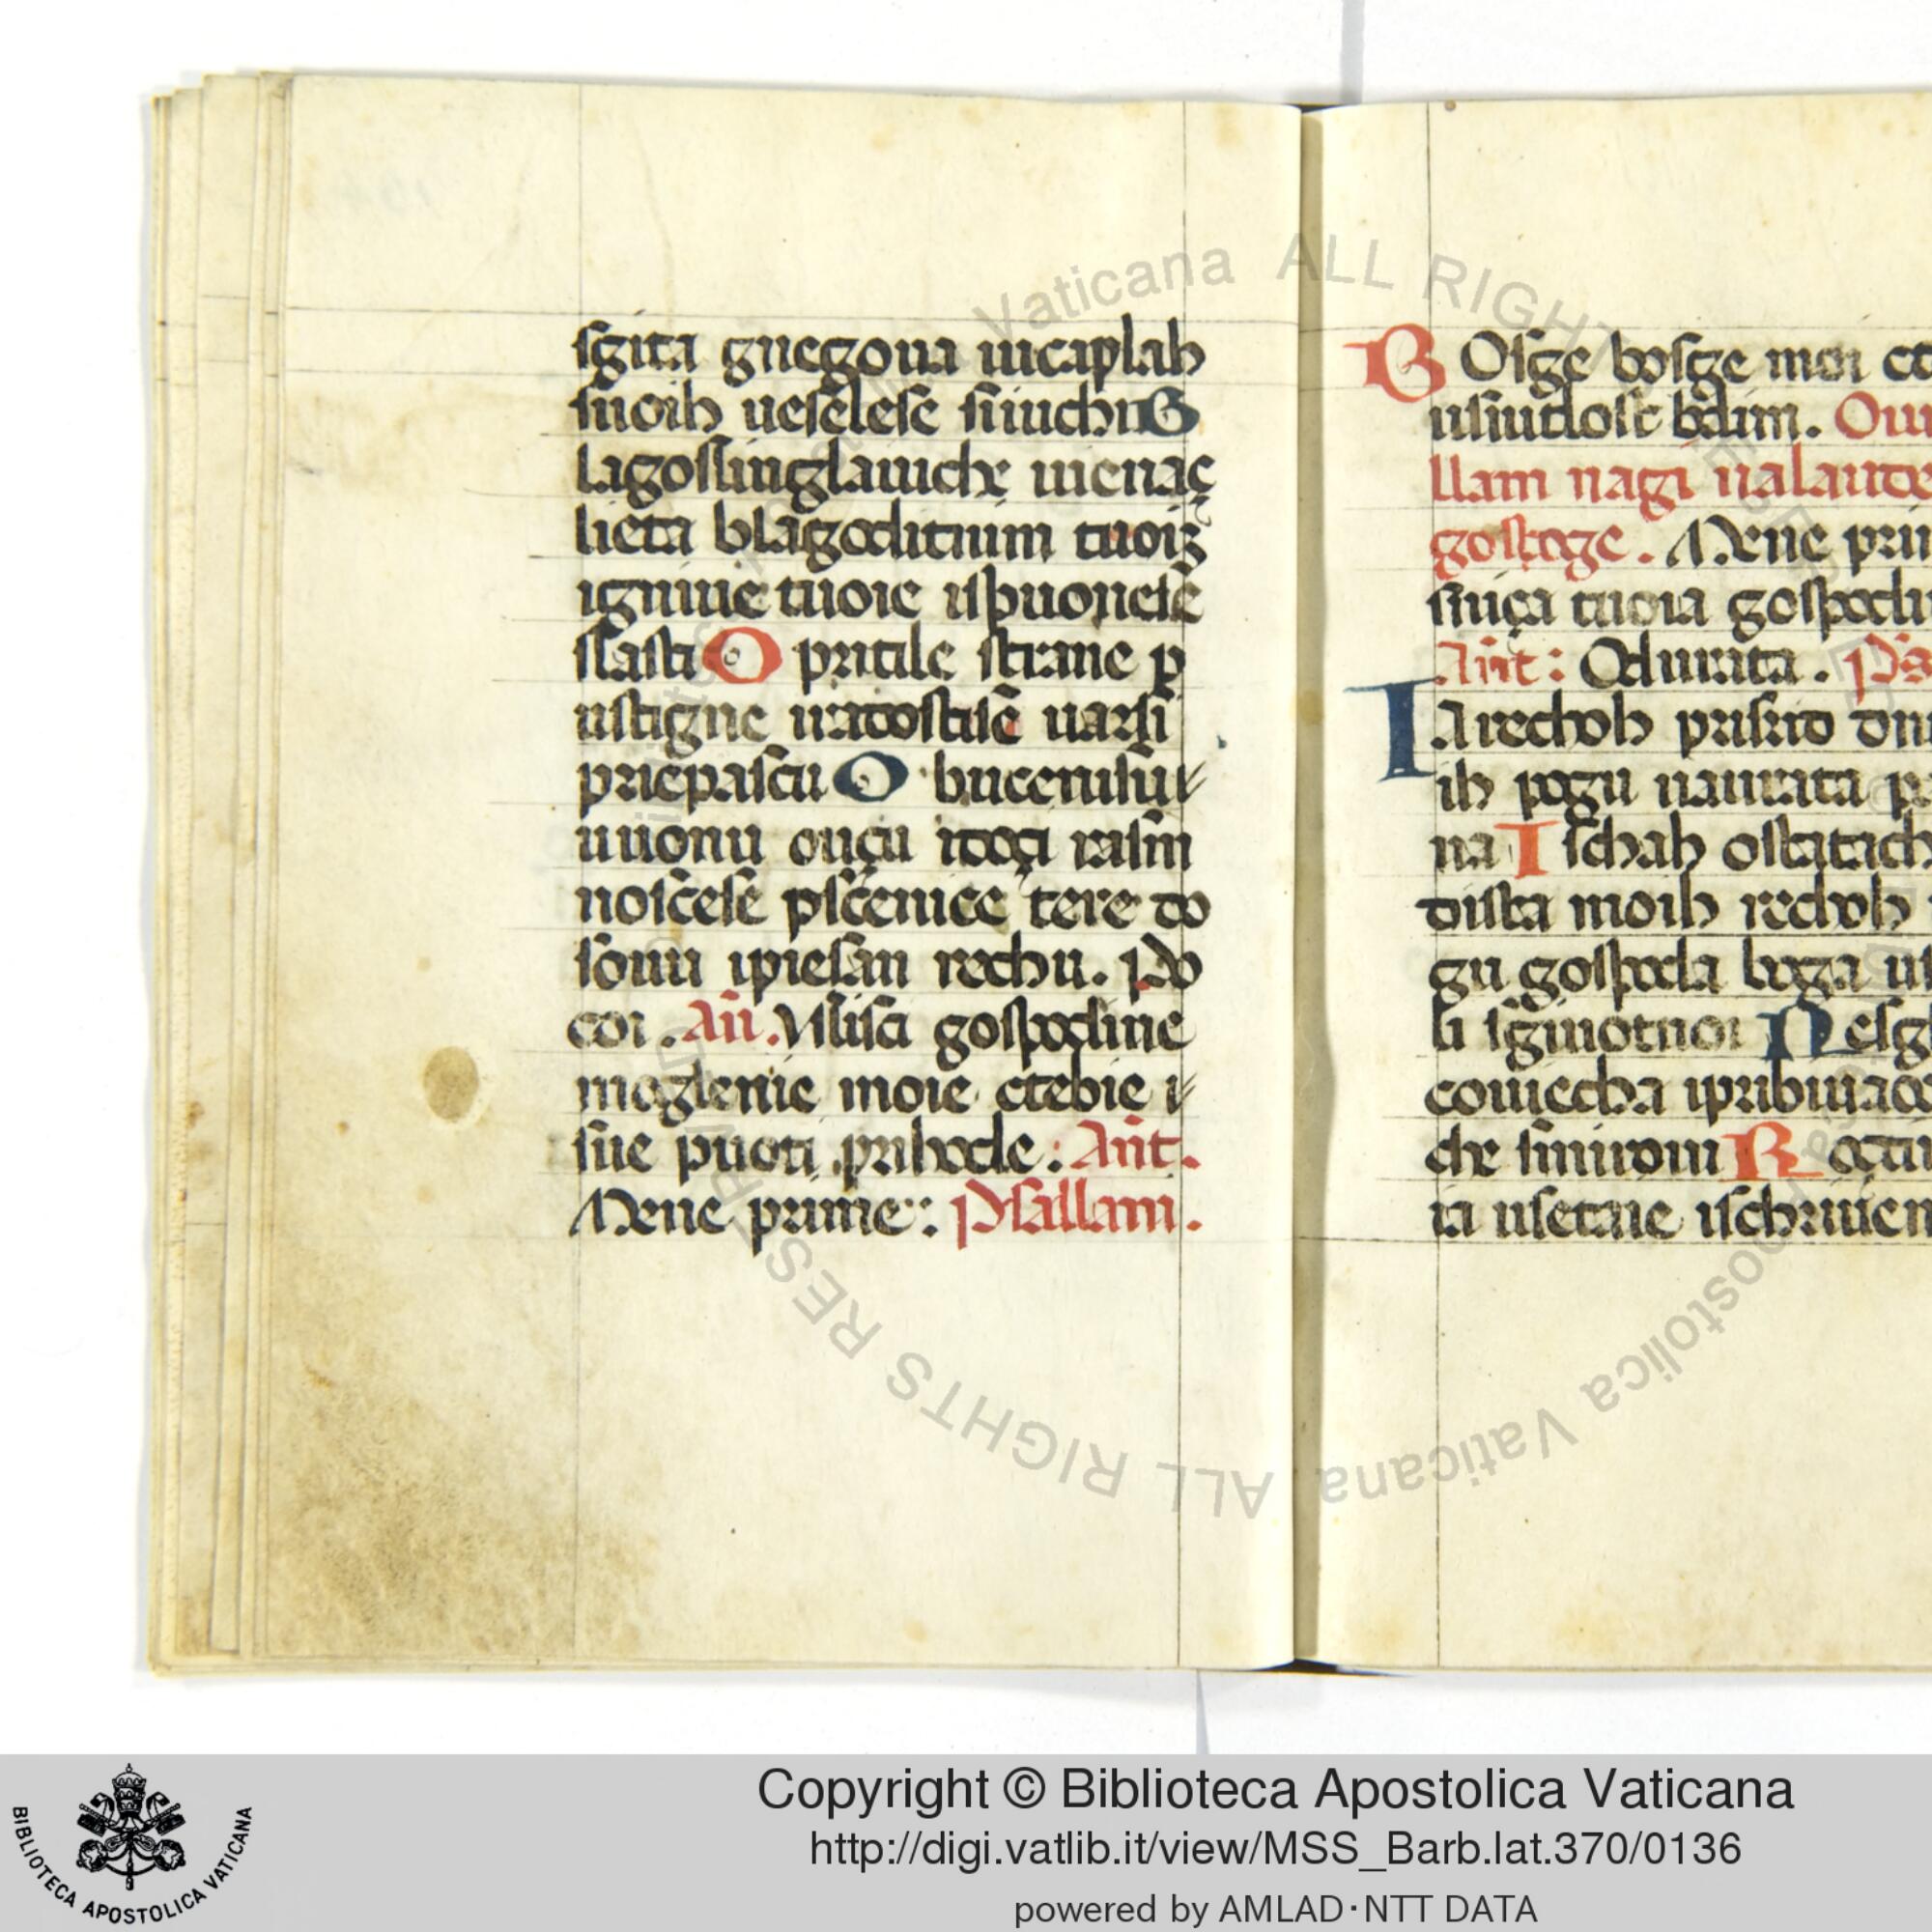 sgita gnegoua uicaplah
suoih ueselese siuuchuB
lagossinglauiche uienaç
lieta blagoditnim tuois
ignuue tuoie ispuonese
slasti O pritile strane p
ustigne uratostise uarsi
priepascu O buceniusu
uuonu ouçu itoça rasm
noscese psceniçe tere to
souu ipiesan rechu. Po
coi. Añ. Vslisci gospodine
moglenie moie ctebie i
sue puoti prihode: Añt.
Mene prime: Psallam.
B Osge bosge moi ct
usiudost bdim. Oui
llam nagi nalaute
gostoge. Mene pri
sniça tuoia gospodi
Añt: Odurata. Psa
I A rechoh prisrid dni
ih pogu naurata pa
na I schah ostatach
dista moih rechoh
gu gospoda boga us
li sgiuotnoi Nesg
couiecha ipribiuaoc
che smirom R
ia usetaie ischriuien
Vaticana ALL RIGHT
ALL RIGHTS RES
Apostolica Vaticana
BIBLIOTECA APOSTOLICA VATICANA
Copyright © Biblioteca Apostolica Vaticana
http://digi.vatlib.it/view/MSS_Barb.lat.370/0136
powered by AMLAD·NTT DATA